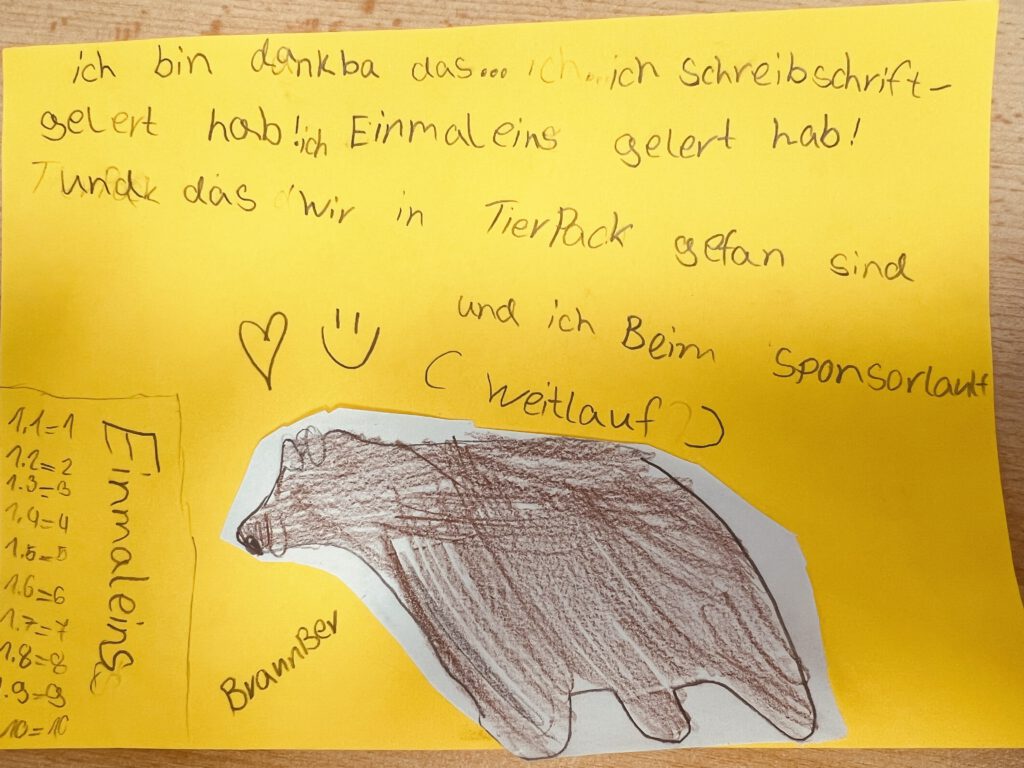 ich bin dankba das... ich...ich schreibschrift-
gelert hab! ich Einmaleins gelert hab!
und das wir in TierPack gefan sind
und ich Beim Sponsorlauft
( weitlauf )
Einmaleins
1.1=1
1.2=2
1.3=3
1.4=4
1.5=5
1.6=6
1.7=7
1.8=8
1.9=9
10=10
BraunBer